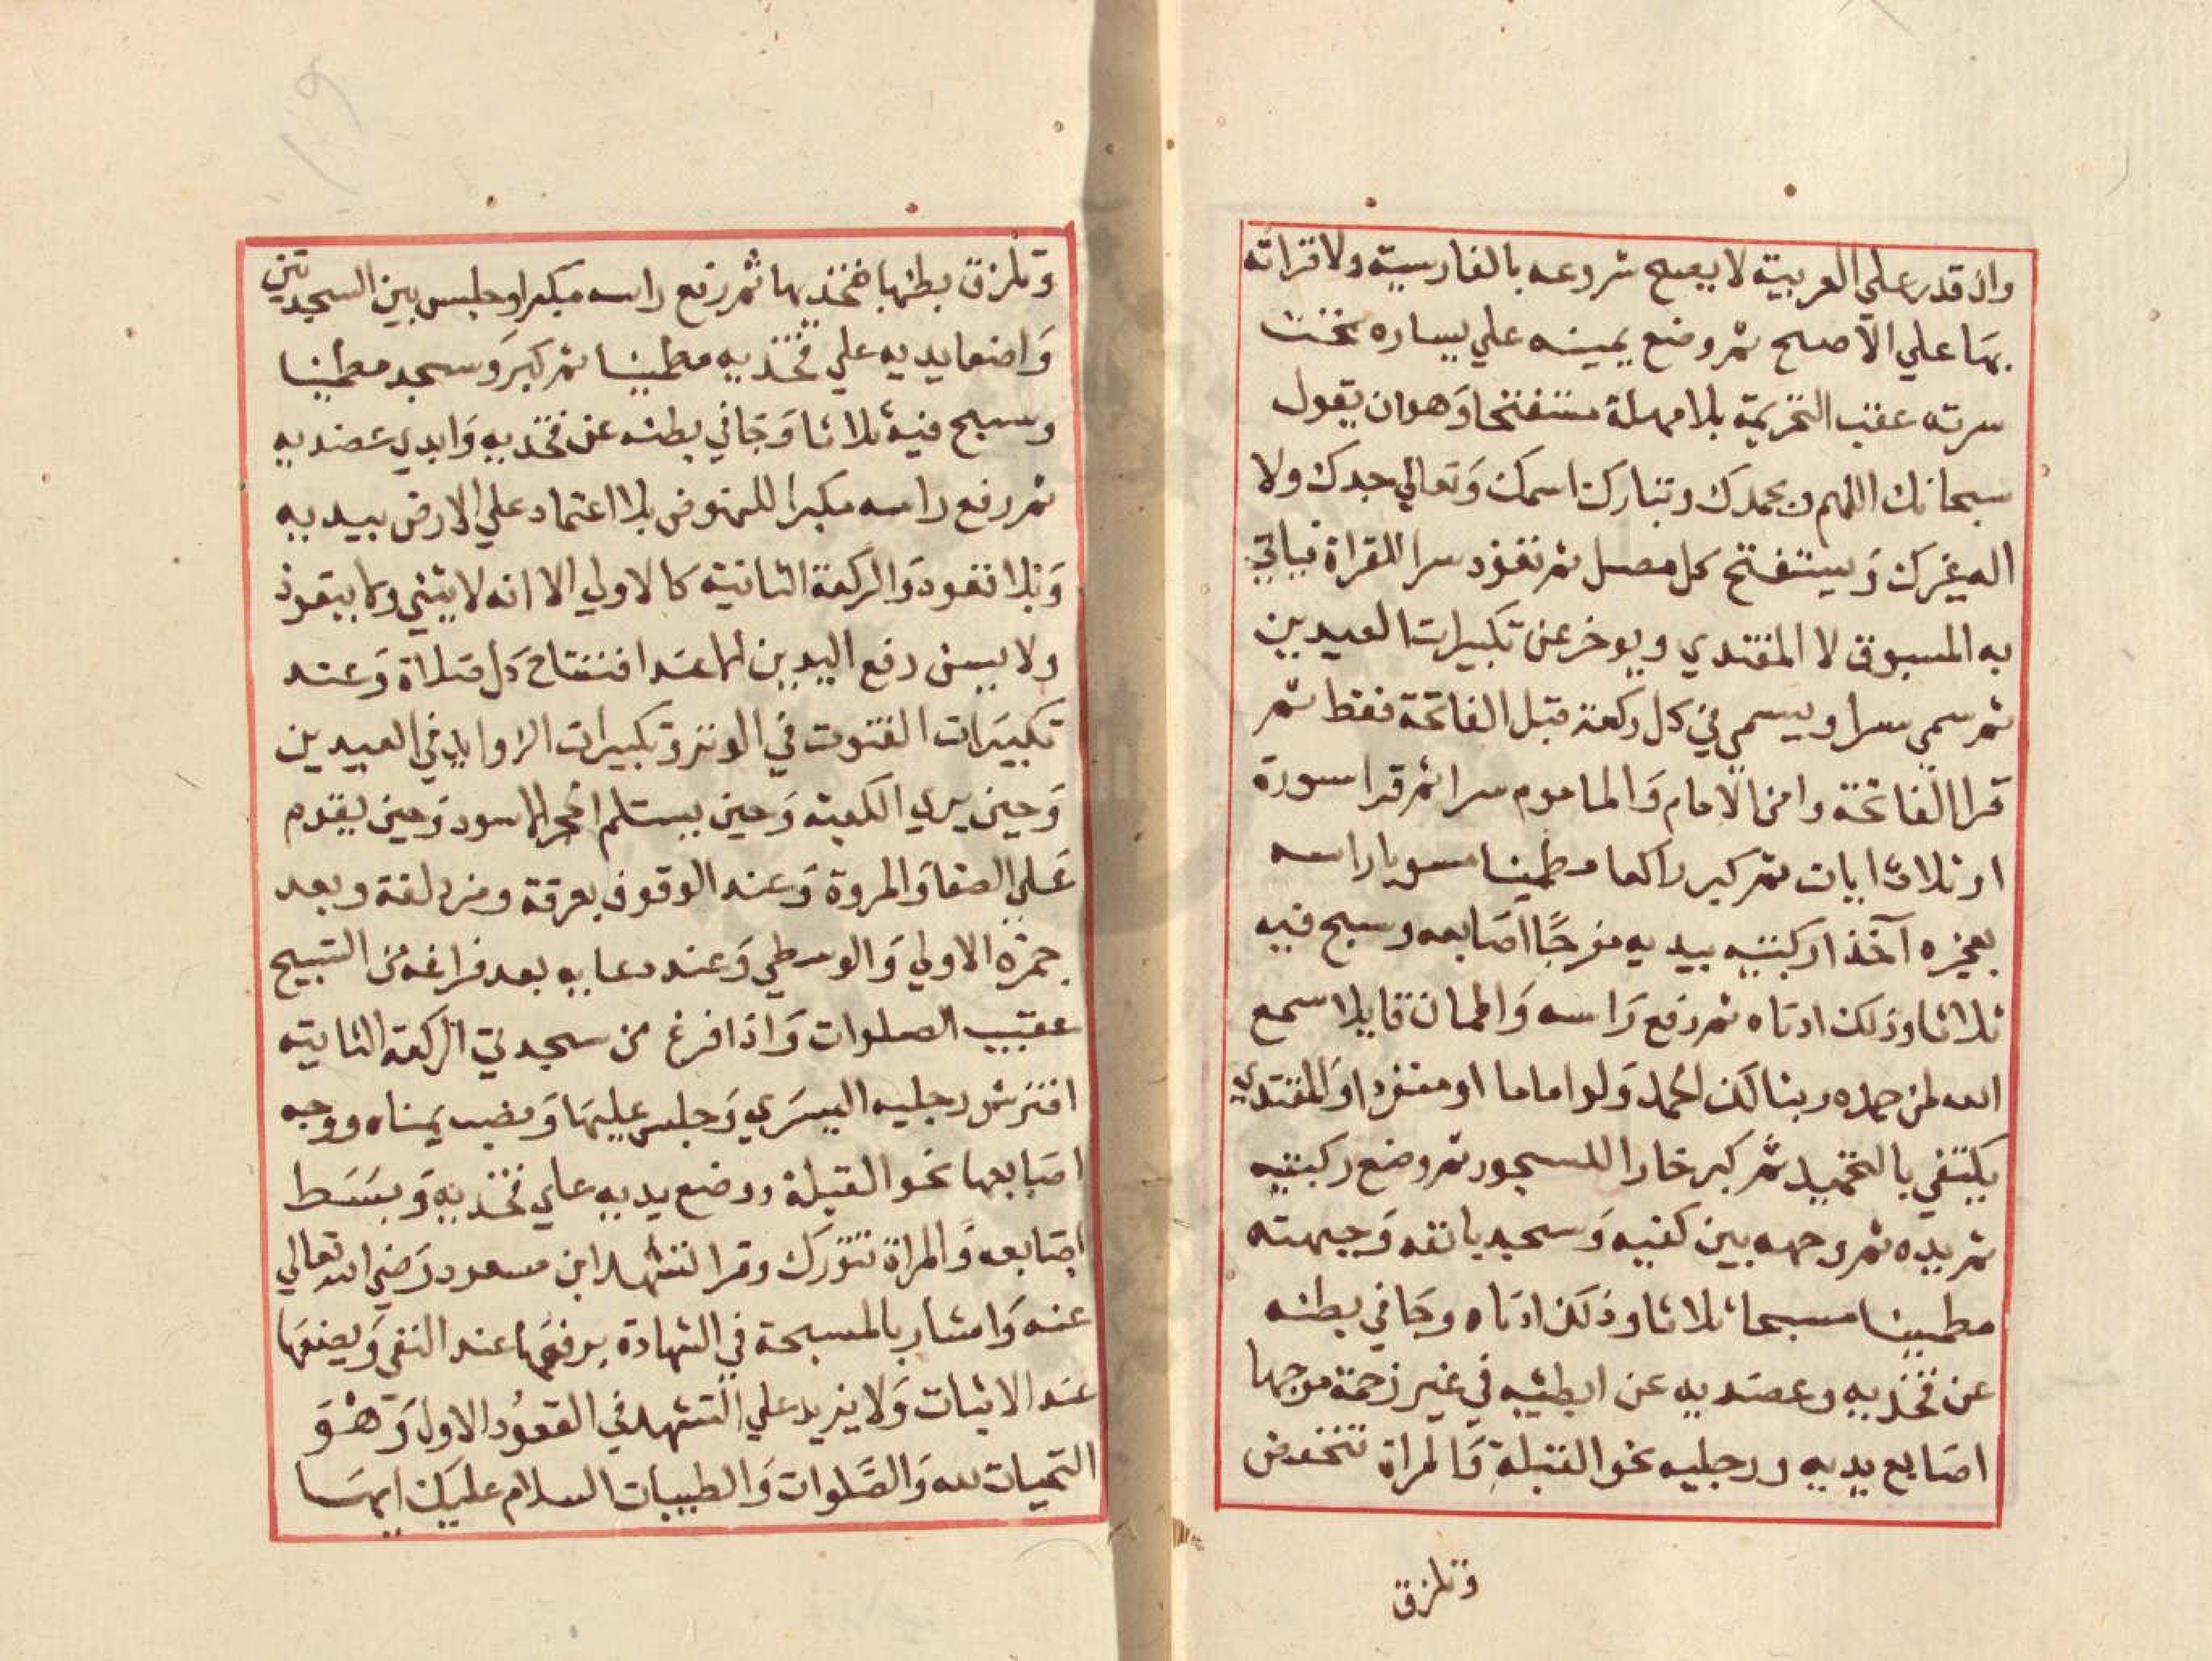 وان قدر علي العربية لا يصح شروعه بالفارسية ولا قراته
بها علي الاصح ثم وضع يمينه علي يساره تحت
سرته عقب التحريمة بلا مهلة مستفتحا وهو ان يقول
سبحانك اللهم وبحمدك وتبارك اسمك وتعالي جدك ولا
اله غيرك ويستفتح كل مصل ثم تعوذ سرا للقراة فياتي
به المسبوق لا المقتدي ويوخر عن تكبيرات العيدين
ثم سمي سرا ويسمي في كل ركعة قبل الفاتحة فقط ثم
قرا الفاتحة وامن الامام والماموم سرا ثم قرا سورة
او ثلاث ايات ثم كبر راكعا مطمينا مسويا راسه
بعجزه آخذا ركبتيه بيديه مفرجًا اصابعه وسبح فيه
ثلاثا وذلك ادناه ثم رفع راسه واطمان قايلا سمع
الله لمن حمده ربنا لك الحمد ولو اماما او منفردا والمقتدي
يكتفي بالتحميد ثم كبر خارا للسجود ثم وضع ركبتيه
ثم يديه ثم وجهه بين كفيه وسجد بانفه وجبهته
مطمينا مسبحا ثلاثا وذلك ادناه وجافي بطنه
عن فخذيه وعضديه عن ابطيه في غير زحمة موجها
اصابع يديه ورجليه نحو القبلة والمراة تنخفض
وتلزق
وتلزق بطنها بفخذيها ثم رفع راسه مكبرا وجلس بين السجدتين
واضعا يديه علي فخذيه مطمينا ثم كبر وسجد مطمينا
وسبح فيه ثلاثا وجافي بطنه عن فخذيه وابدي عضديه
ثم رفع راسه مكبرا للنهوض بلا اعتماد علي الارض بيديه
وبلا قعود والركعة الثانية كالاولي الا انه لا يثني ولا يتعوذ
ولا يسن رفع اليدين الا عند افتتاح كل صلاة وعند
تكبيرات القنوت في الوتر وتكبيرات الزوايد في العيدين
وحين يري الكعبة وحين يستلم الحجر الاسود وحين يقوم
علي الصفا والمروة وعند الوقوف بعرفة ومزدلفة وبعد
جمرة الاولي والوسطي وعند دعايه بعد فراغه من التسبيح
عقيب الصلوات واذا فرغ من سجدتي الركعة الثانية
افترش رجليه اليسري وجلس عليها ونصب يمناه ووجه
اصابعها نحو القبلة ووضع يديه علي فخذيه وبسط
اصابعه والمراة تتورك وقرا تشهد ابن مسعود رضي الله تعالي
عنه واشار بالمسبحة في الشهادة يرفعها عند النفي ويضعها
عند الاثبات ولا يزيد علي التشهد في القعود الاول وهو
التحيات لله والصلوات والطيبات السلام عليك ايها